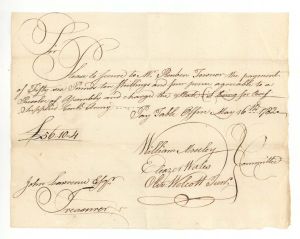 Sir
Please to secure to Mr. Reuben Farnor the payment
of Fifty six Pounds ten Shillings and four pence agreeable to a
Resolve of Assembly and charge the State for Beef
Supplied Contl. Army
Pay Table Office May 16th 1782
£56.10.4
William Moseley
Eleazr Wales
Olivr Wolcott Junr
Committee
John Lawrence Esqr
Treasurer